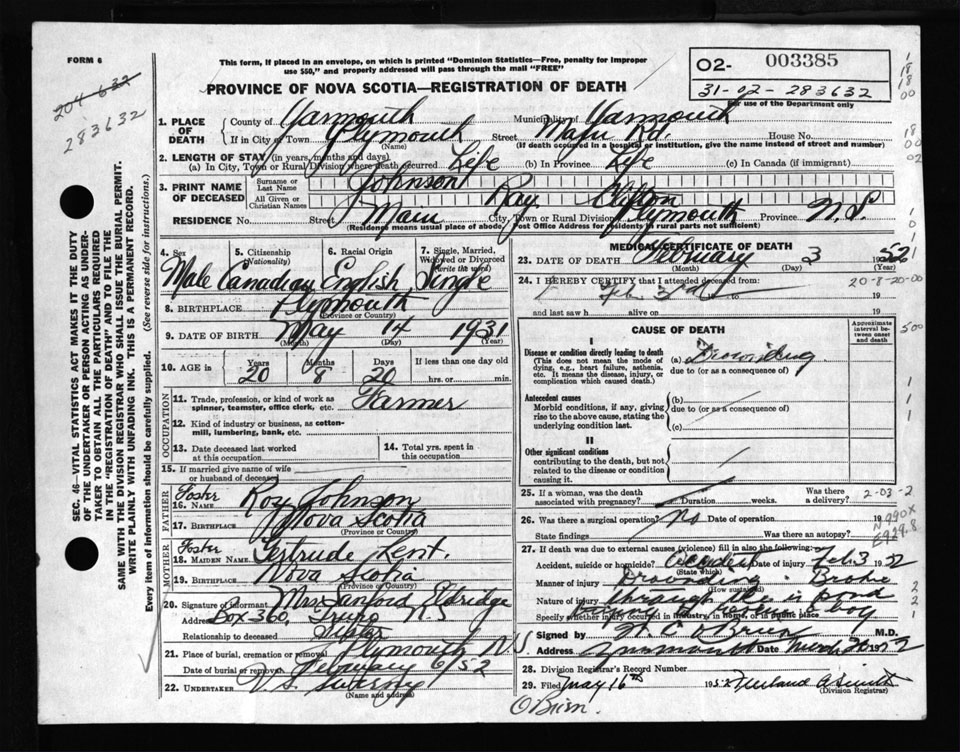 FORM 6
This form, if placed in an envelope, on which is printed "Dominion Statistics—Free, penalty for improper
use $50," and properly addressed will pass through the mail "FREE"
PROVINCE OF NOVA SCOTIA—REGISTRATION OF DEATH
O2- 003385
31-02-283632
For use of the Department only
204 632
283632
1. PLACE OF DEATH
County of Yarmouth Municipality of Yarmouth
If in City or Town Plymouth Street Main Rd. House No.
(Name) (If death occurred in a hospital or institution, give the name instead of street and number)
2. LENGTH OF STAY (in years, months and days)
(a) In City, Town or Rural Division where death occurred Life (b) In Province Life (c) In Canada (if immigrant)
3. PRINT NAME OF DECEASED
Surname or Last Name Johnson
All Given or Christian Names Ray Clifton
RESIDENCE No. Street Main City, Town or Rural Division Plymouth Province N.S.
(Residence means usual place of abode. Post Office Address for residents in rural parts not sufficient)
4. Sex 5. Citizenship (Nationality) 6. Racial Origin 7. Single, Married, Widowed or Divorced (write the word)
Male Canadian English Single
8. BIRTHPLACE Plymouth
(Province or Country)
9. DATE OF BIRTH May 14 1931
(Month) (Day)
10. AGE in Years 20 Months 8 Days 20 If less than one day old
hrs. or min.
OCCUPATION
11. Trade, profession, or kind of work as spinner, teamster, office clerk, etc. Farmer
12. Kind of industry or business, as cotton-mill, lumbering, bank, etc.
13. Date deceased last worked at this occupation
14. Total yrs. spent in this occupation
15. If married give name of wife or husband of deceased
FATHER
Foster
16. NAME Roy Johnson
17. BIRTHPLACE Nova Scotia
(Province or Country)
MOTHER
Foster
18. MAIDEN NAME Gertrude Kent.
19. BIRTHPLACE Nova Scotia
(Province or Country)
20. Signature of informant Mrs Sanford Eldridge
Address Box 360, Truro N.S
Relationship to deceased Sister
21. Place of burial, cremation or removal Plymouth N.S
Date of burial or removal February 6/52
22. UNDERTAKER V.S. Sweeny
(Name and address)
MEDICAL CERTIFICATE OF DEATH
23. DATE OF DEATH February 3 1952
(Month) (Day) (Year)
24. I HEREBY CERTIFY that I attended deceased from:
20-8-20-00
and last saw h alive on 19
CAUSE OF DEATH
Approximate interval between onset and death
I
Disease or condition directly leading to death
(This does not mean the mode of dying, e.g., heart failure, asthenia, etc. It means the disease, injury, or complication which caused death.)
(a) Drowning
due to (or as a consequence of)
Antecedent causes
Morbid conditions, if any, giving rise to the above cause, stating the underlying condition last.
(b)
due to (or as a consequence of)
(c)
II
Other significant conditions
contributing to the death, but not related to the disease or condition causing it.
25. If a woman, was the death associated with pregnancy? Duration weeks. Was there a delivery?
2-03-2
26. Was there a surgical operation? No Date of operation 19
State findings Was there an autopsy?
N990X
E929.8
27. If death was due to external causes (violence) fill in also the following:
Accident, suicide or homicide? Accident Date of injury Feb 3 1952
(State which)
Manner of injury Drownding - Broke
(How sustained)
Nature of injury through the ice pond
Specify whether injury occurred in industry, in home, or in public place trying to rescue a boy
Signed by O'Brien M.D.
Address Yarmouth Date 1952
28. Division Registrar's Record Number
29. Filed May 16th 1952
(Division Registrar)
O'Brien.
SEC. 46—VITAL STATISTICS ACT MAKES IT THE DUTY
OF THE UNDERTAKER OR PERSON ACTING AS UNDER-
TAKER TO OBTAIN ALL THE PARTICULARS REQUIRED
IN THE "REGISTRATION OF DEATH" AND TO FILE THE
SAME WITH THE DIVISION REGISTRAR WHO SHALL ISSUE THE BURIAL PERMIT.
WRITE PLAINLY WITH UNFADING INK. THIS IS A PERMANENT RECORD.
Every item of information should be carefully supplied. (See reverse side for instructions.)